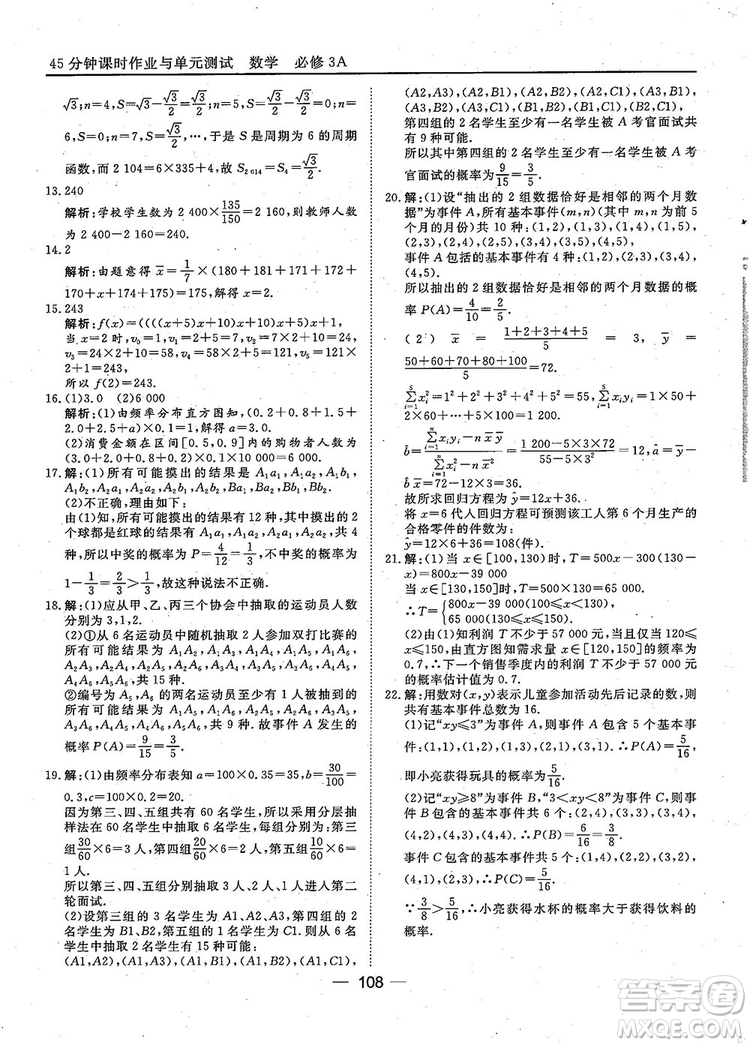 45分钟课时作业与单元测试 数学 必修3A
√3;n=4,S=√3/2+√3/2=√3;n=5,S=√3-√3/2=√3/2;n=
6,S=√3/2-√3/2,…,于是S是周期为6的周期
函数,而2 104=6×335+4,故S₂ ₀₁₄=S₄=√3/2.
13.240
解析:学校学生数为2 400×135/150=2 160,则教师人数
为2 400-2 160=240.
14.2
解析:由题意得x̄=1/7×(180+181+170+173+178+
170+x+179)=175,解得x=2.
15.243
解析:f(x)=((((5x+4)x+10)x+5)x+1)x+1,
当x=2时,有v₀=5,v₁=5×2+4=14,v₂=14×2+
v₃=24×2+10=58,v₄=58×2+5=121,v₅=243.
所以f(2)=243.
16.(1)3.0 (2)6 000
解析:(1)由频率分布直方图知:(0.2+0.8+1.5+
2.0+2.5+a)×0.1=1,解得a=3.0.
(2)消费金额在区间[0.5,0.9]内的购物者人数为
(3.0+2.0+0.8+0.2)×0.1×10 000=6 000.
17.解:(1)所有可能摸出的结果是A₁a₁,A₁a₂,A₁b₁,
A₁b₂,A₂a₁,A₂a₂,A₂b₁,A₂b₂,Ba₁,Ba₂,Bb₁,Bb₂.
(2)不正确,理由如下:
由(1)知,所有可能的结果有12种,其中摸出的2个
球都是红球的结果为A₁a₁,A₁a₂,A₂a₁,A₂a₂,共4
种,所以中奖的概率为P=4/12=1/3,不中奖的概率为
1-1/3=2/3>1/3,故这种说法不正确.
18.解:(1)应从甲、乙、丙三个协会中抽取的运动员人数
分别为3,1,2.
(2)①从6名运动员中随机抽取2名参加双打比赛的
所有可能结果为A₁A₂,A₁A₃,A₁A₄,A₁A₅,A₁A₆,
A₂A₃,A₂A₄,A₂A₅,A₂A₆,A₃A₄,A₃A₅,A₃A₆,A₄A₅,
A₄A₆,A₅A₆,共15种.
②编号为A₅,A₆的两名运动员至少有一人被抽到的
所有可能结果为A₁A₅,A₁A₆,A₂A₅,A₂A₆,A₃A₅,
A₃A₆,A₄A₅,A₄A₆,A₅A₆,共9种.故事件A发生的
概率P(A)=9/15=3/5.
19.解:(1)由频率分布表知a=100×0.35=35,b=30/100=
0.3,c=100×0.2=20.
因为第三、四、五组共有60名学生,所以利用分层抽
样法在60名学生中抽取6名学生,每组分别为:第三
组30/60×6=3人,第四组20/60×6=2人,第五组10/60×6=
1人.
所以第三、四、五组分别抽取3人、2人、1人进入第二
轮面试.
(2)设第三组的3名学生为A1、A2、A3,第四组的2名
学生为B1、B2,第五组的1名学生为C1.则从6名学
生中抽取2名学生有15种可能:
(A1,A2),(A1,A3),(A1,B1),(A1,B2),(A1,C1),
(A2,A3),(A2,B1),(A2,B2),(A2,C1),(A3,B1),
(A3,B2),(A3,C1),(B1,B2),(B1,C1),(B2,C1).
第四组的2名学生至少有一名学生被A考官面试共
有9种可能.
所以其中第四组的2名学生至少有一名学生被A考
官面试的概率为9/15=3/5.
20.解:(1)设“抽出的2组数据恰好是相邻的两个月数
据”为事件A,所有基本事件(m,n)(其中m,n为前5
个月的月份)共10种:(1,2),(1,3),(1,4),(1,5),
(2,3),(2,4),(2,5),(3,4),(3,5),(4,5).
事件A包含的基本事件有4种:(1,2),(2,3),(3,4),
(4,5).
所以抽出的2组数据恰好是相邻的两个月数据的概
率P(A)=4/10=2/5.
(2) x̄=(1+2+3+4+5)/5=3,ȳ=
(50+60+70+80+100)/5=72.
∑xᵢ²=1²+2²+3²+4²+5²=55,∑xᵢyᵢ=1×50+
2×60+…+5×100=1 200.
b̂=(∑xᵢyᵢ-n x̄ ȳ)/(∑xᵢ²-n x̄²)=(1 200-5×3×72)/(55-5×3²)=12,â=ȳ-
b̂ x̄=72-12×3=36.
故所求回归方程为ŷ=12x+36.
将x=6代入回归方程可预测该工人第6个月生产的
合格零件的件数为:
ŷ=12×6+36=108(件).
21.解:(1)当x∈[100,130)时,T=500x-300(130-
x)=800x-39 000
当x∈[130,150]时,T=500×130=65 000.
∴T={800x-39 000(100≤x<130)
65 000(130≤x≤150).
(2)由(1)知利润T不少于57 000元,当且仅当120≤
x≤150,由直方图知需求量x∈[120,150]的频率为
0.7,下一个销售季度内的利润T不少于57 000元的
概率估计值为0.7.
22.解:用数对(x,y)表示儿童参加活动先后记录的数,则
共有基本事件总数为16.
(1)记“xy≤3”为事件A,则事件A包含5个基本事
件:(1,1),(1,2),(1,3),(2,1),(3,1).∴P(A)=5/16,
即小亮获得玩具的概率为5/16.
(2)记“xy≥8”为事件B,“3<xy<8”为事件C.则事
件B包含的基本事件共6个:(2,4),(3,3),(3,4),
(4,2),(4,3),(4,4).∴P(B)=6/16=3/8.
事件C包含的基本事件共5个:(1,4),(2,2),(2,3),
(3,2),(4,1).∴P(C)=5/16.
∵3/8>5/16,∴小亮获得水杯的概率大于获得饮料的
概率.
108
答案圈
MXQE.COM